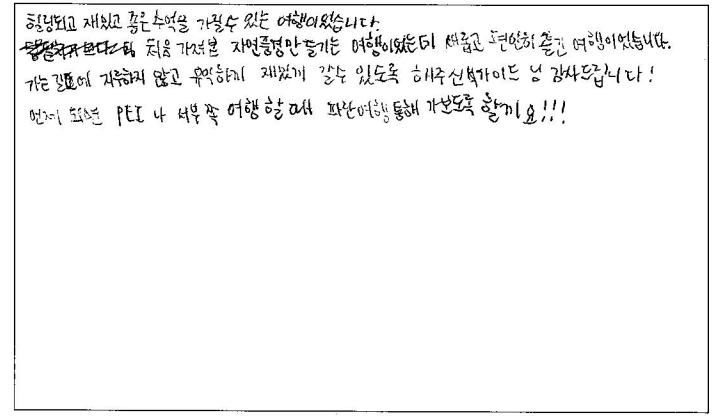 힐링되고 재밌고 좋은추억을 가질수 있는 여행이었습니다.
처음 가져본 자연풍경만 즐기는 여행이었는데 새롭고 편안히 즐긴 여행이었습니다.
가는 길도에 지루하지 않고 유익하게 재밌게 갈수 있도록 해주신 가이드 님 감사드립니다!
PEI 나 서부 쪽 여행 할 때 파란여행 통해 가보도록 할께요!!!